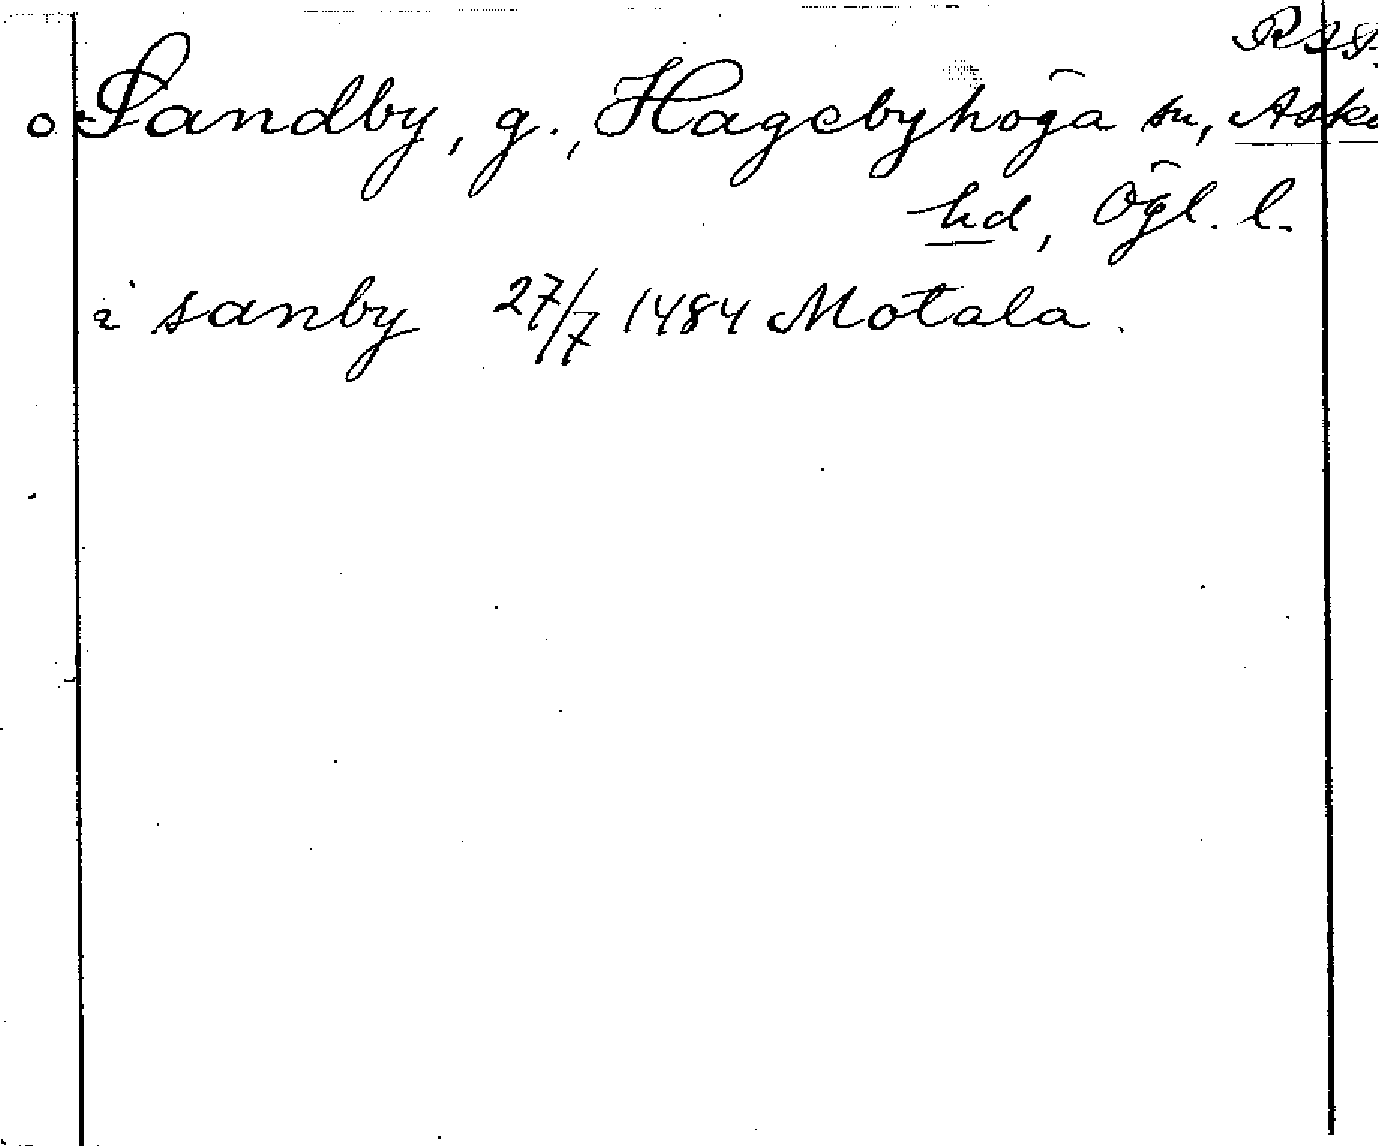 o Sandby, g., Hagebyhöga sn, Aska
hd, Ögl. l.
i sanby 27/7 1484 Motala.